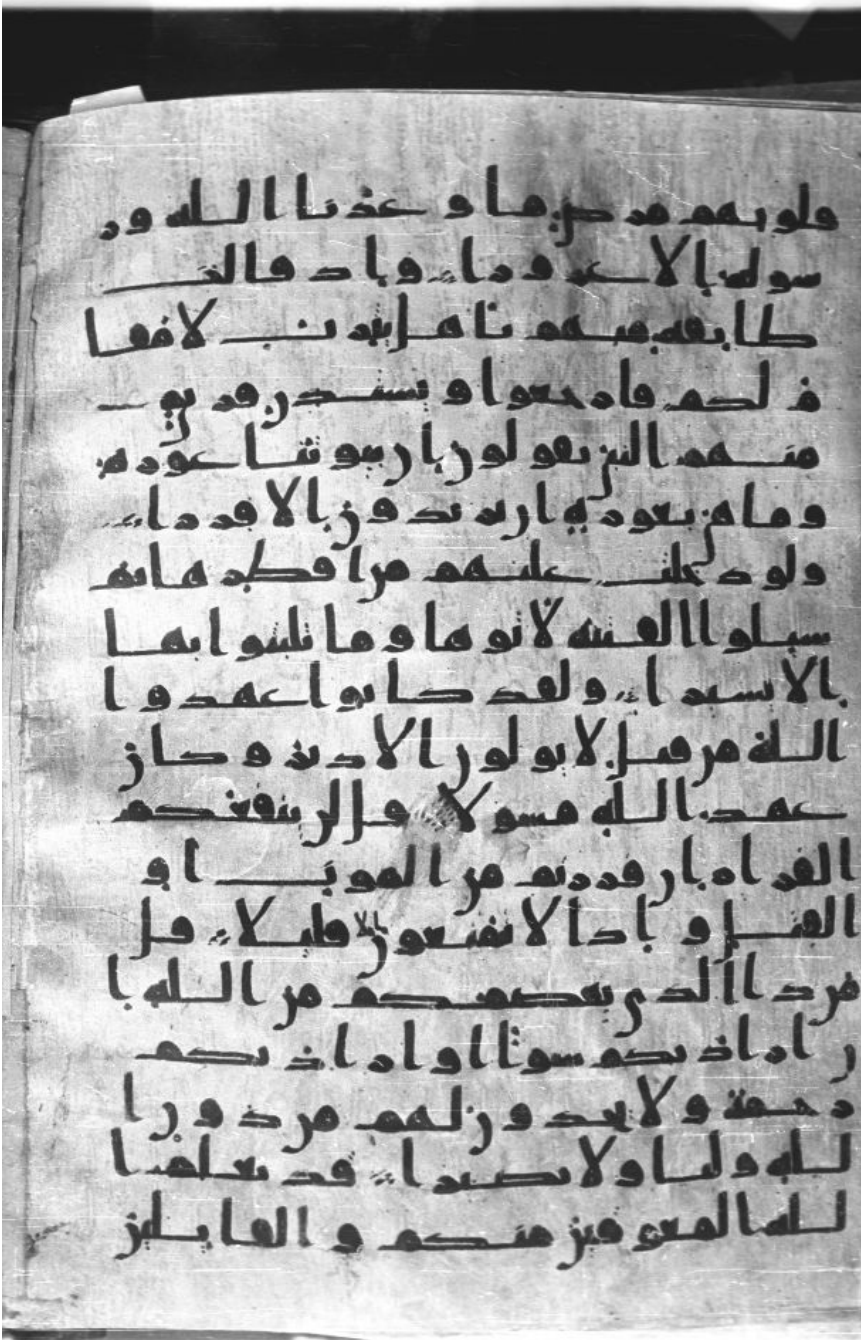 قلوبهم مرض ما وعدنا الله ور
سوله الا غرورا واذ قالت
طايفة منهم ياهل يثرب لا مقا
م لكم فارجعوا ويستذن فريق
منهم النبي يقولون ان بيوتنا عورة
وما هي بعورة ان يريدون الا فرارا
ولو دخلت عليهم من اقطرها ثم
سيلوا الفتنة لاتوها وما تلبثوا بها
الا يسيرا ولقد كانوا عهدوا
الله من قبل لا يولون الادبر وكان
عهد الله مسولا قل لن ينفعكم
الفرار ان فررتم من الموت او
القتل واذا لا تمتعون الا قليلا قل
من ذا الذي يعصمكم من الله ا
ن اراد بكم سوا او اراد بكم
رحمة ولا يجدون لهم من دون ا
لله وليا ولا نصيرا قد يعلم ا
لله المعوقين منكم والقايلين